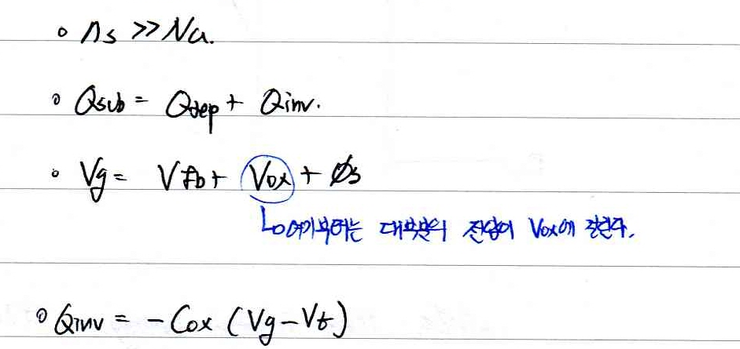 ◦ ns >> Na.
◦ Qsub = Qdep + Qinv.
◦ Vg = Vfb + Vox + φs
↳ 여기부터는 대부분의 전압이 Vox에 걸린다.
◦ Qinv = - Cox (Vg - Vt)